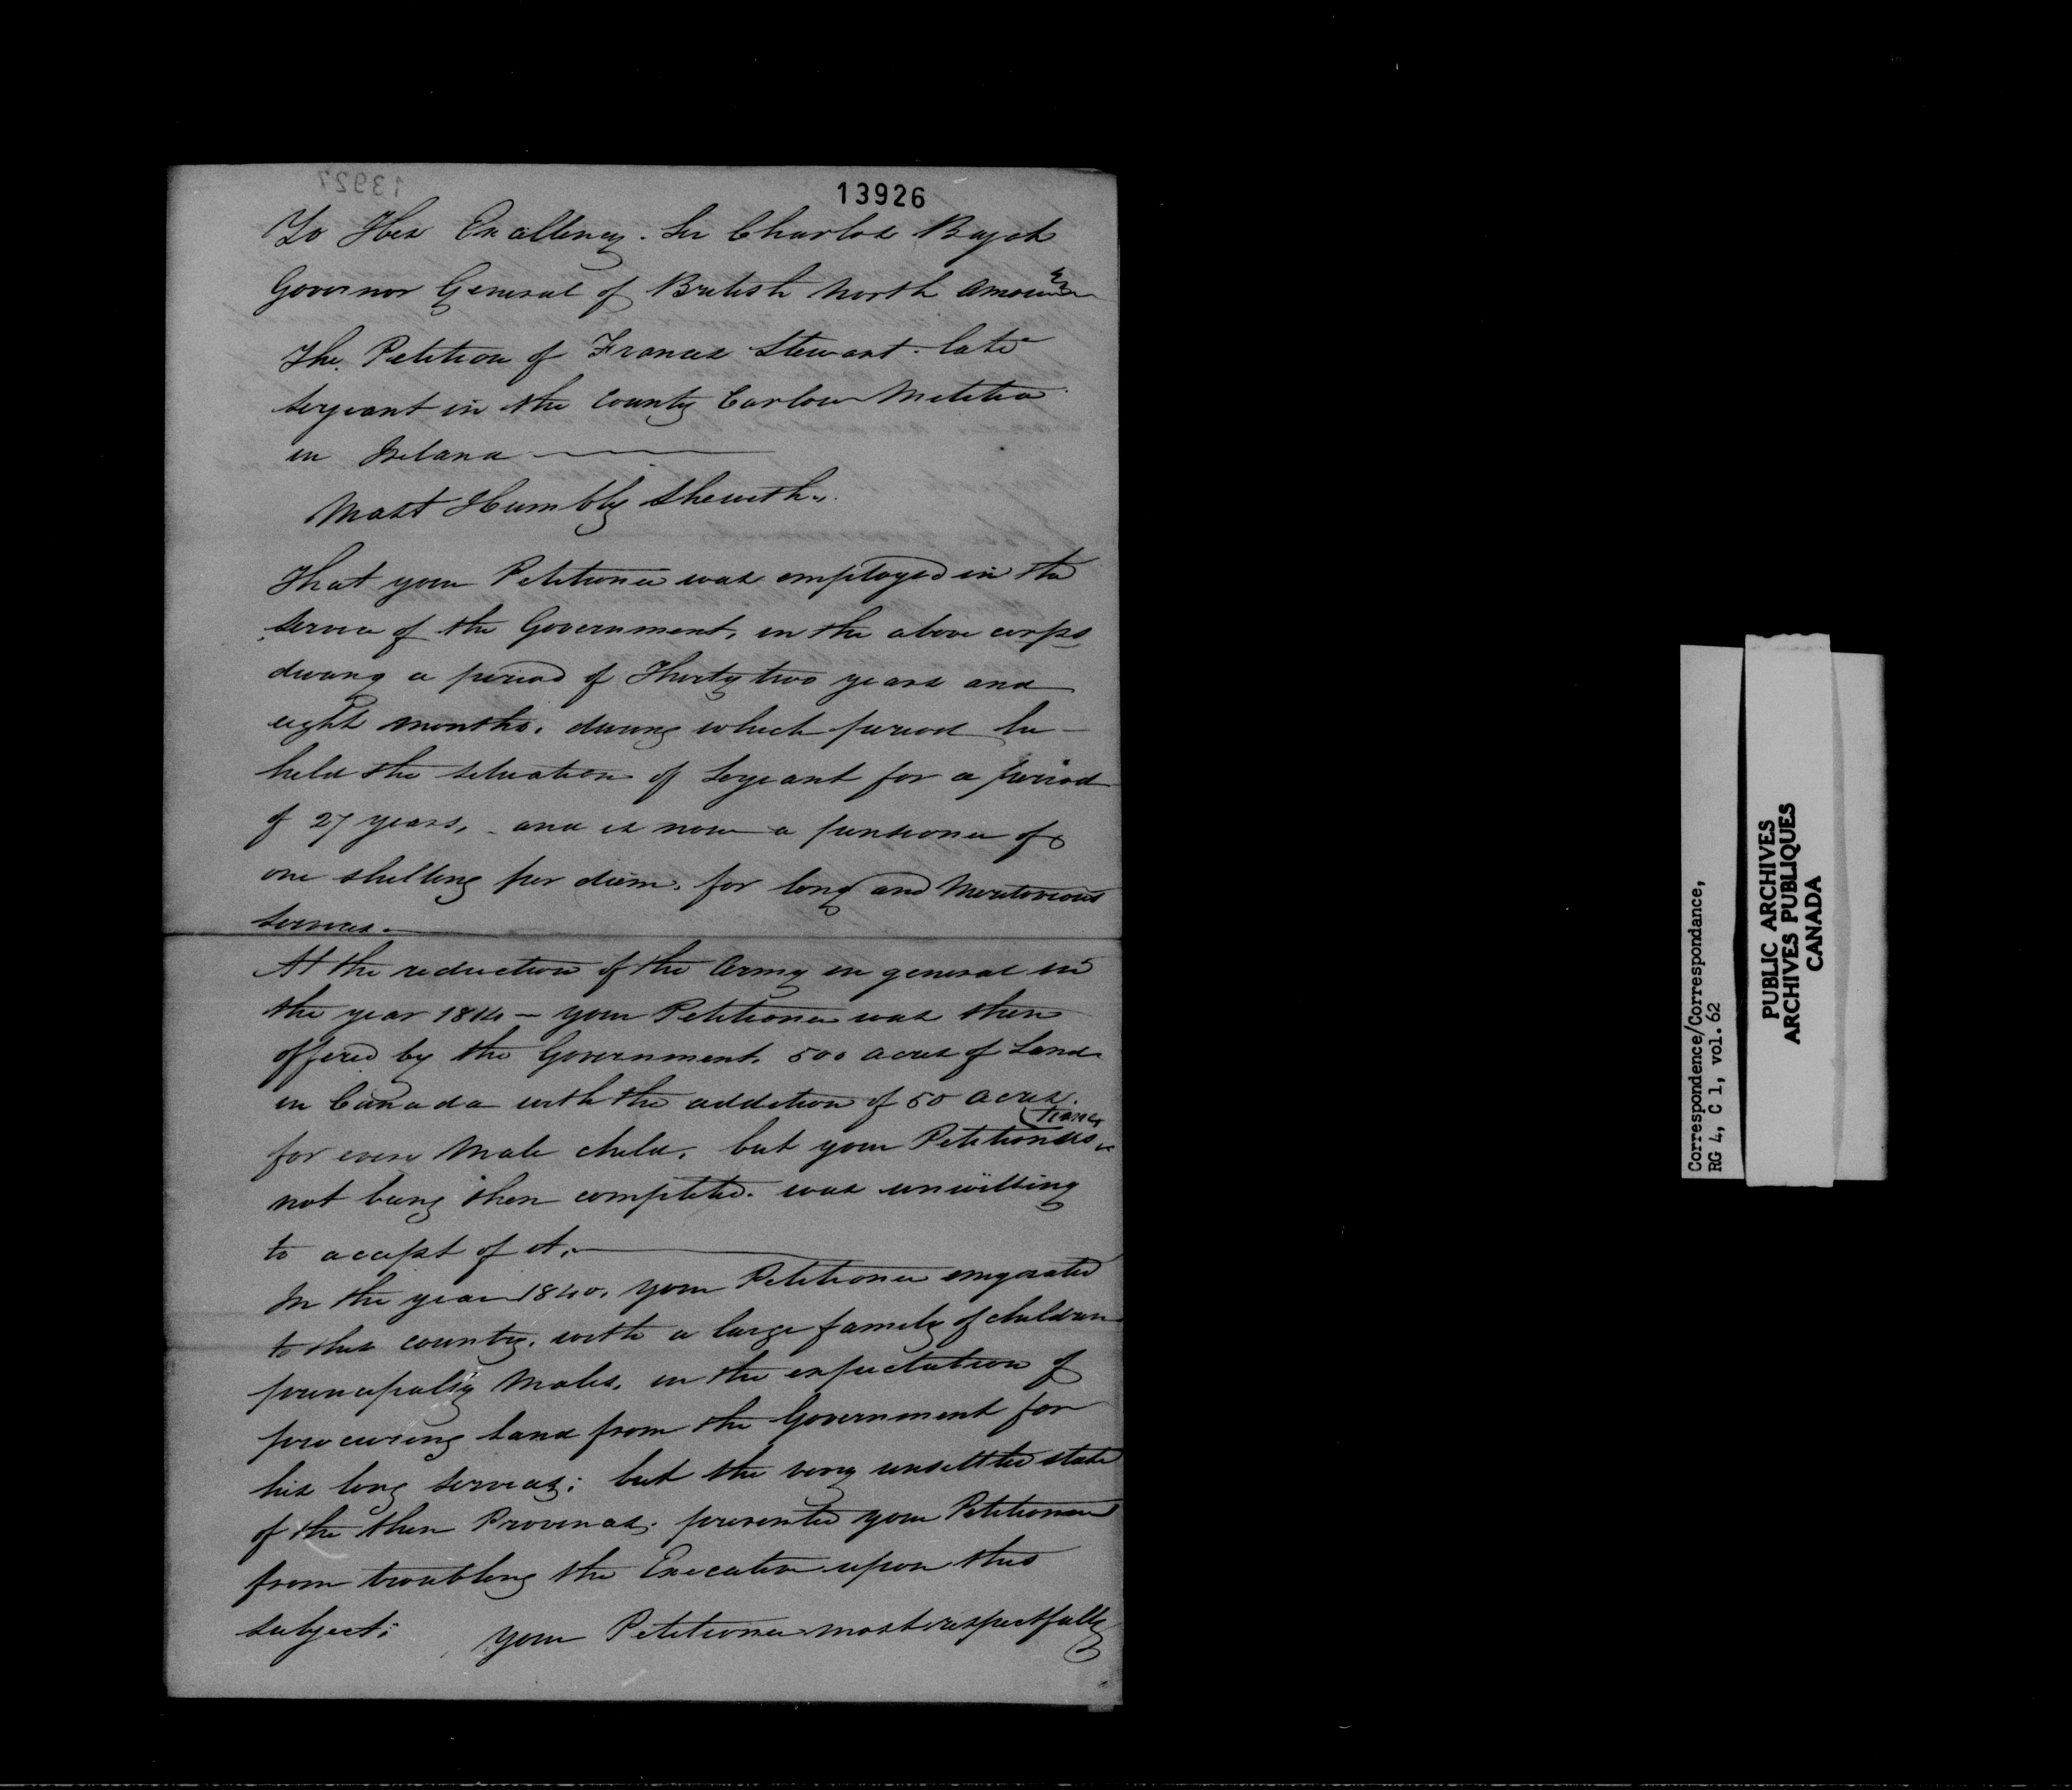 13927
13926
To His Excellency Sir Charles Bagot
Governor General of British North America
The Petition of Francis Stewart late
Sergeant in the County Carlow Militia
in Ireland
Most Humbly Sheweth,
That your Petitioner was employed in the
service of the Government, in the above corps
during a period of Thirty two years and
eight months, during which period he
held the situation of Sergeant for a period
of 27 years, and is now a pensioner of
one shilling per diem, for long and Meritorious
services.
At the reduction of the Army in general in
the year 1814 - your Petitioner was then
offered by the Government, 500 acres of Land
in Canada with the addition of 50 acres
for every Male child, but your Petitioners
not being then completed was unwilling
to accept of it.
In the year 1840, your Petitioner emigrated
to this country, with a large family of children
principally Males, in the expectation of
procuring land from the Government for
his long services; but the very unsettled state
of the then Provinces, prevented your Petitioner
from troubling the Executive upon this
subject; your Petitioner most respectfully
Correspondence/Correspondance,
RG 4, C 1, vol. 62
PUBLIC ARCHIVES
ARCHIVES PUBLIQUES
CANADA